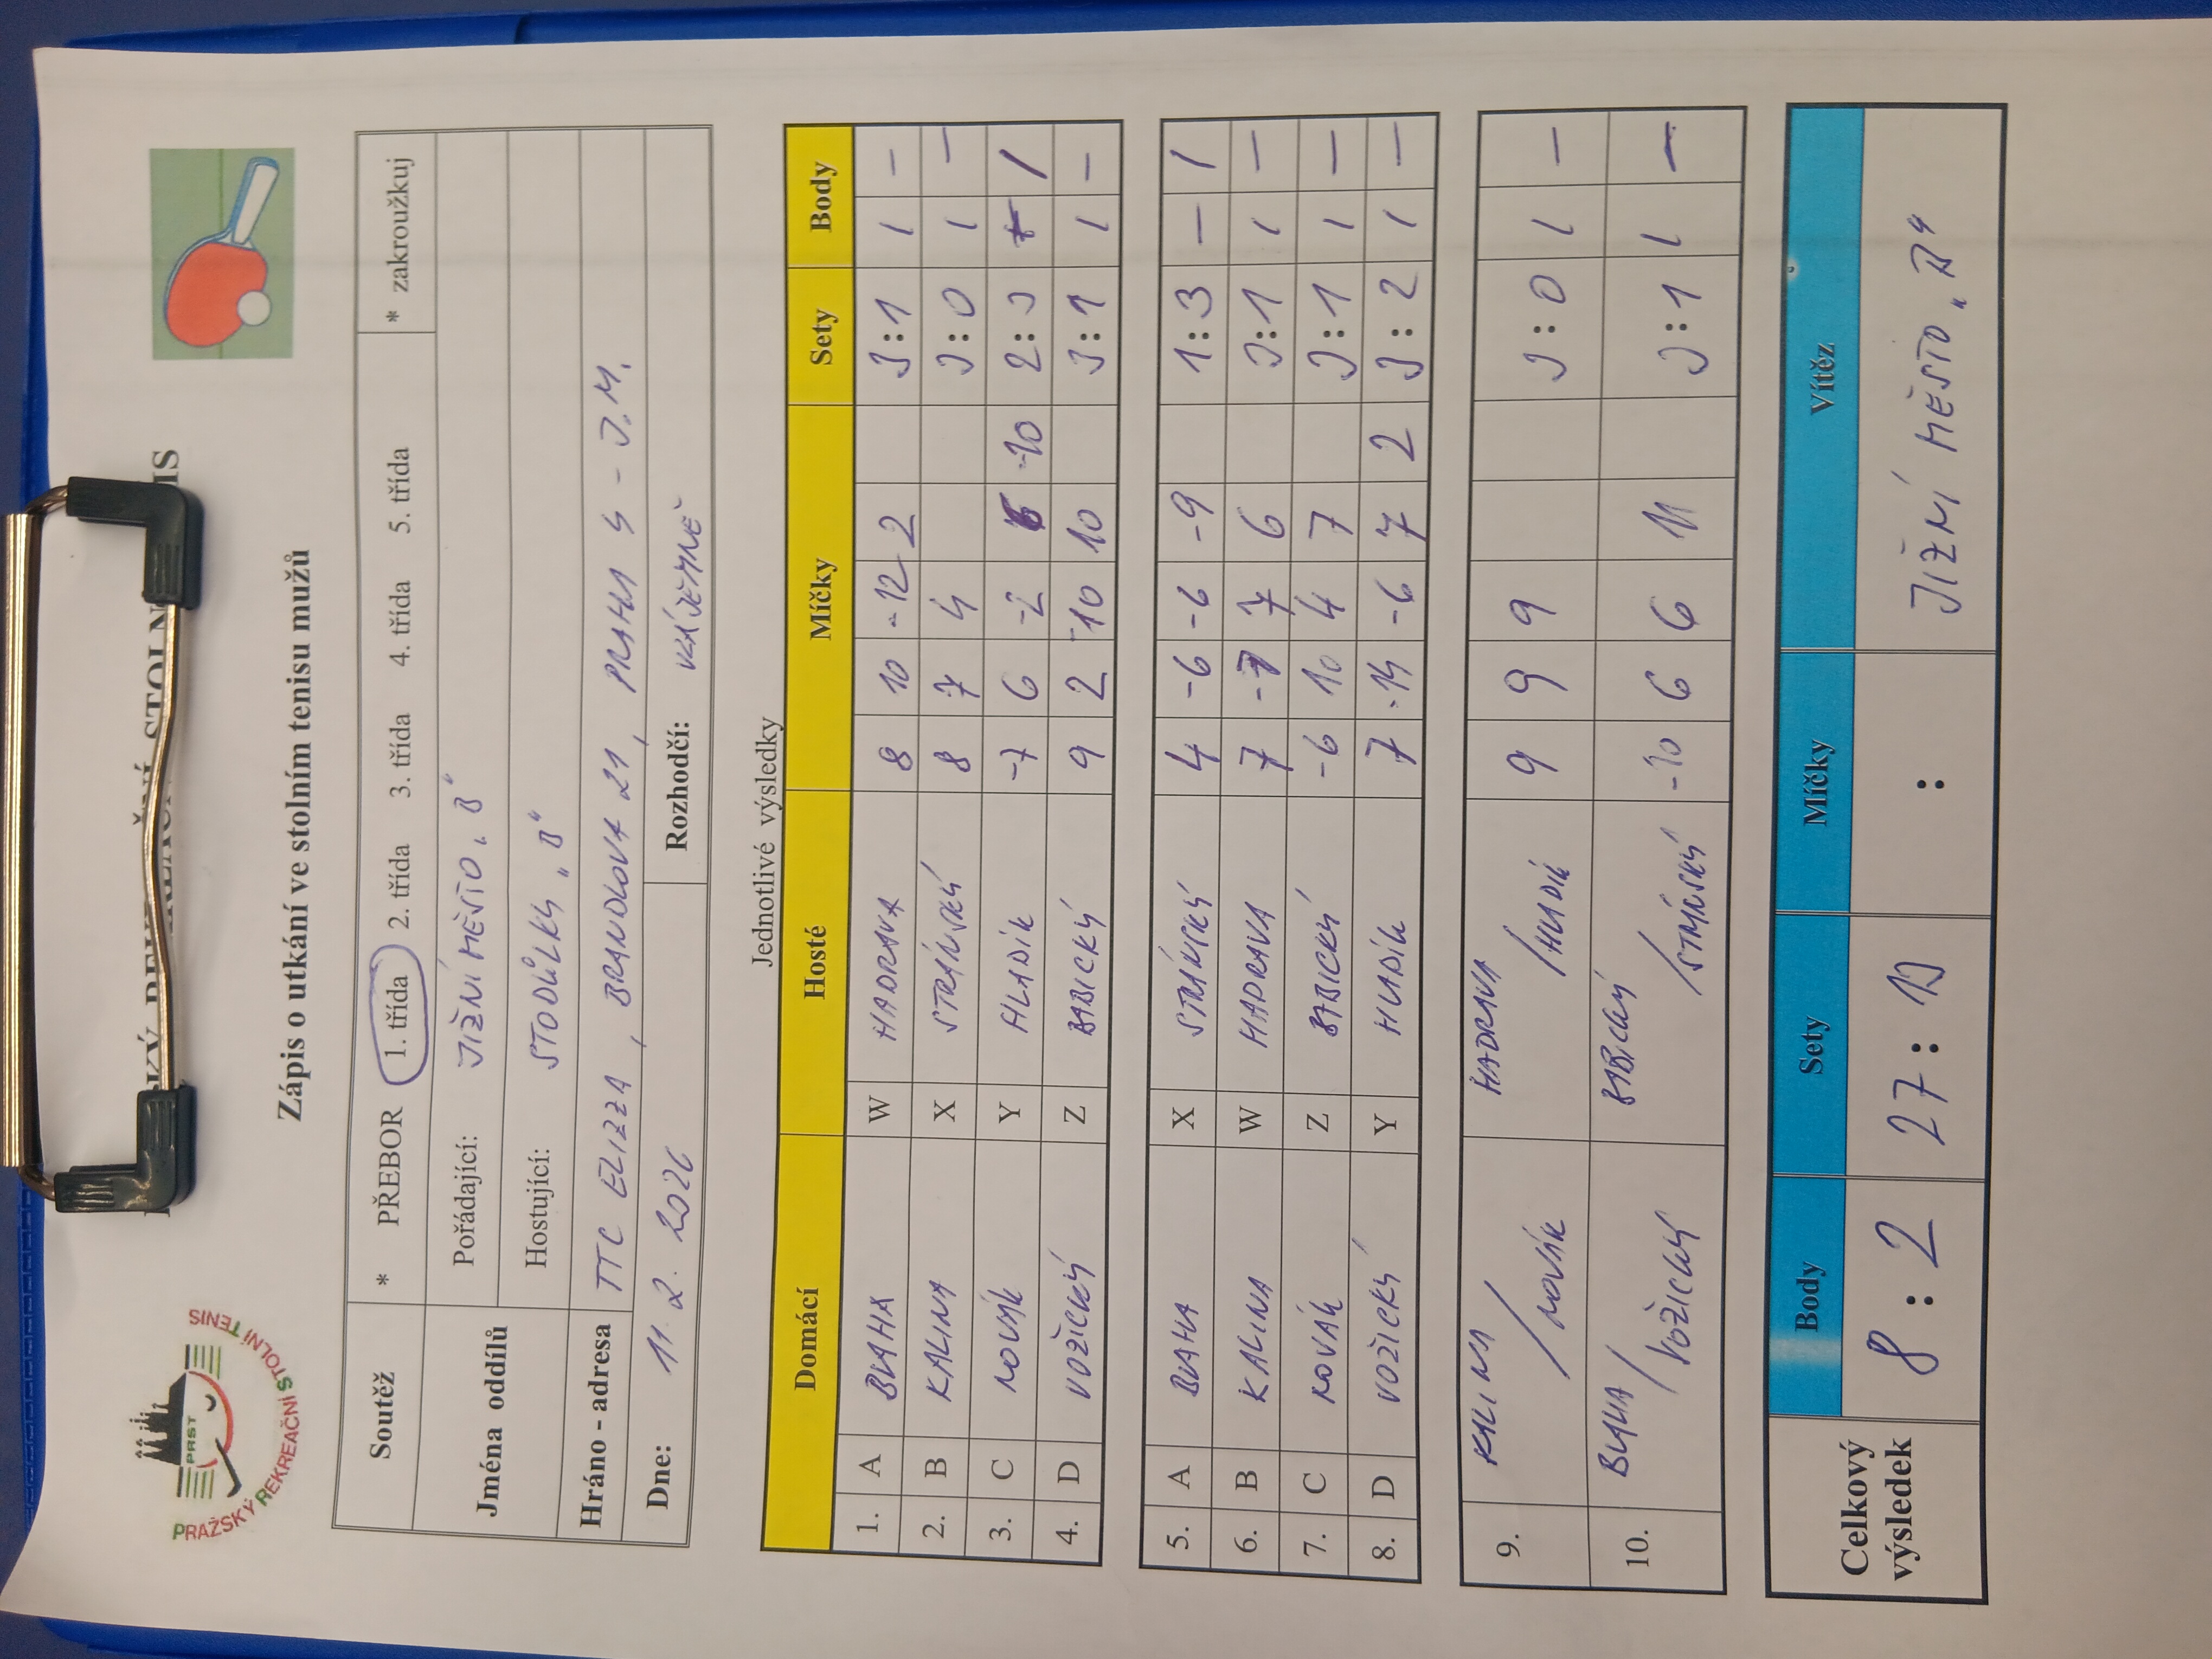 PRST
PRAŽSKÝ REKREAČNÍ STOLNÍ TENIS
Zápis o utkání ve stolním tenisu mužů
Soutěž * PŘEBOR 1. třída 2. třída 3. třída 4. třída 5. třída * zakroužkuj
Jména oddílů Pořádající: JIŽNÍ MĚSTO „B"
Hostující: STODŮLKY „B"
Hráno - adresa TTC ELIZZA, BRANDLOVA 21, PRAHA 4 - J.M.
Dne: 11. 2. 2026 Rozhodčí: VZÁJEMNĚ
Jednotlivé výsledky
Domácí Hosté Míčky Sety Body
1. A BLAHA W HADRAVA 8 10 -12 2 3:1 1 –
2. B KALINA X STRÁNSKÝ 8 7 4 3:0 1 –
3. C NOVÁK Y HLADÍK -7 6 -2 6 -10 2:3 1
4. D VOŽICKÝ Z BABICKÝ 9 2 -10 10 3:1 1 –
5. A BLAHA X STRÁNSKÝ 4 -6 -6 -9 1:3 – 1
6. B KALINA W HADRAVA 7 -7 7 6 3:1 1 –
7. C NOVÁK Z BABICKÝ -6 10 4 7 3:1 1 –
8. D VOŽICKÝ Y HLADÍK 7 -14 -6 7 2 3:2 1 –
9. KALINA / NOVÁK HADRAVA / HLADÍK 9 9 9 3:0 1 –
10. BLAHA / VOŽICKÝ BABICKÝ / STRÁNSKÝ -10 6 6 11 3:1 1 –
Celkový výsledek Body Sety Míčky Vítěz
8 : 2 27 : 13 : JIŽNÍ MĚSTO „B"